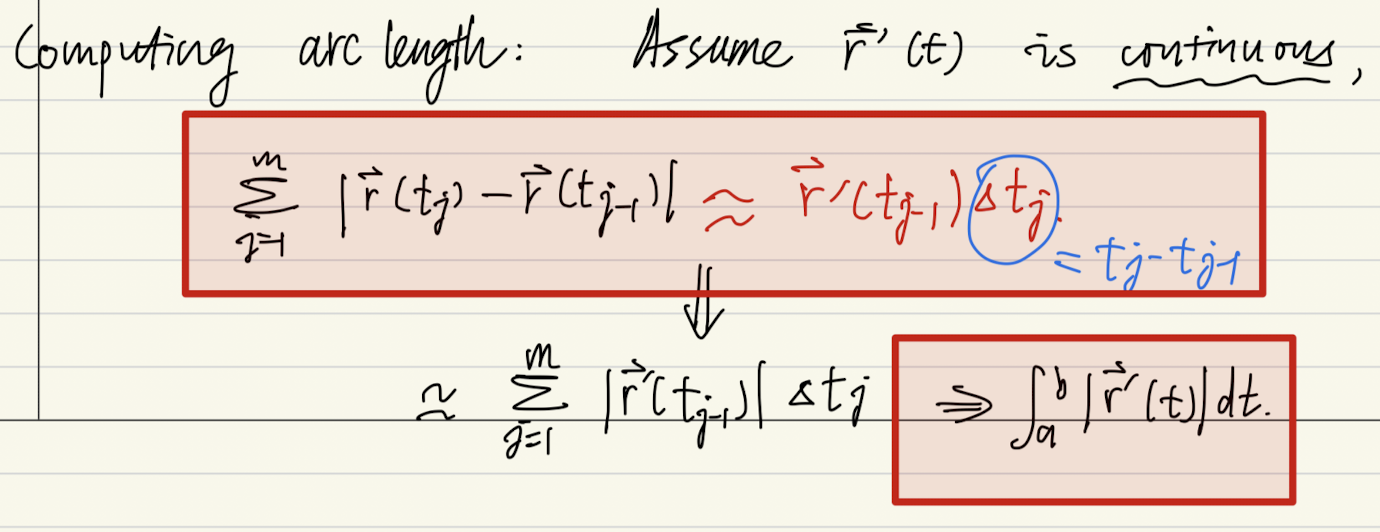 Computing arc length: Assume r⃗′(t) is continuous,
∑_{j=1}^{m} |r⃗(t_j) − r⃗(t_{j-1})| ≈ r⃗′(t_{j-1}) Δt_j.
= t_j - t_{j-1}
⇓
≈ ∑_{j=1}^{m} |r⃗′(t_{j-1})| Δt_j ⇒ ∫_a^b |r⃗′(t)| dt.